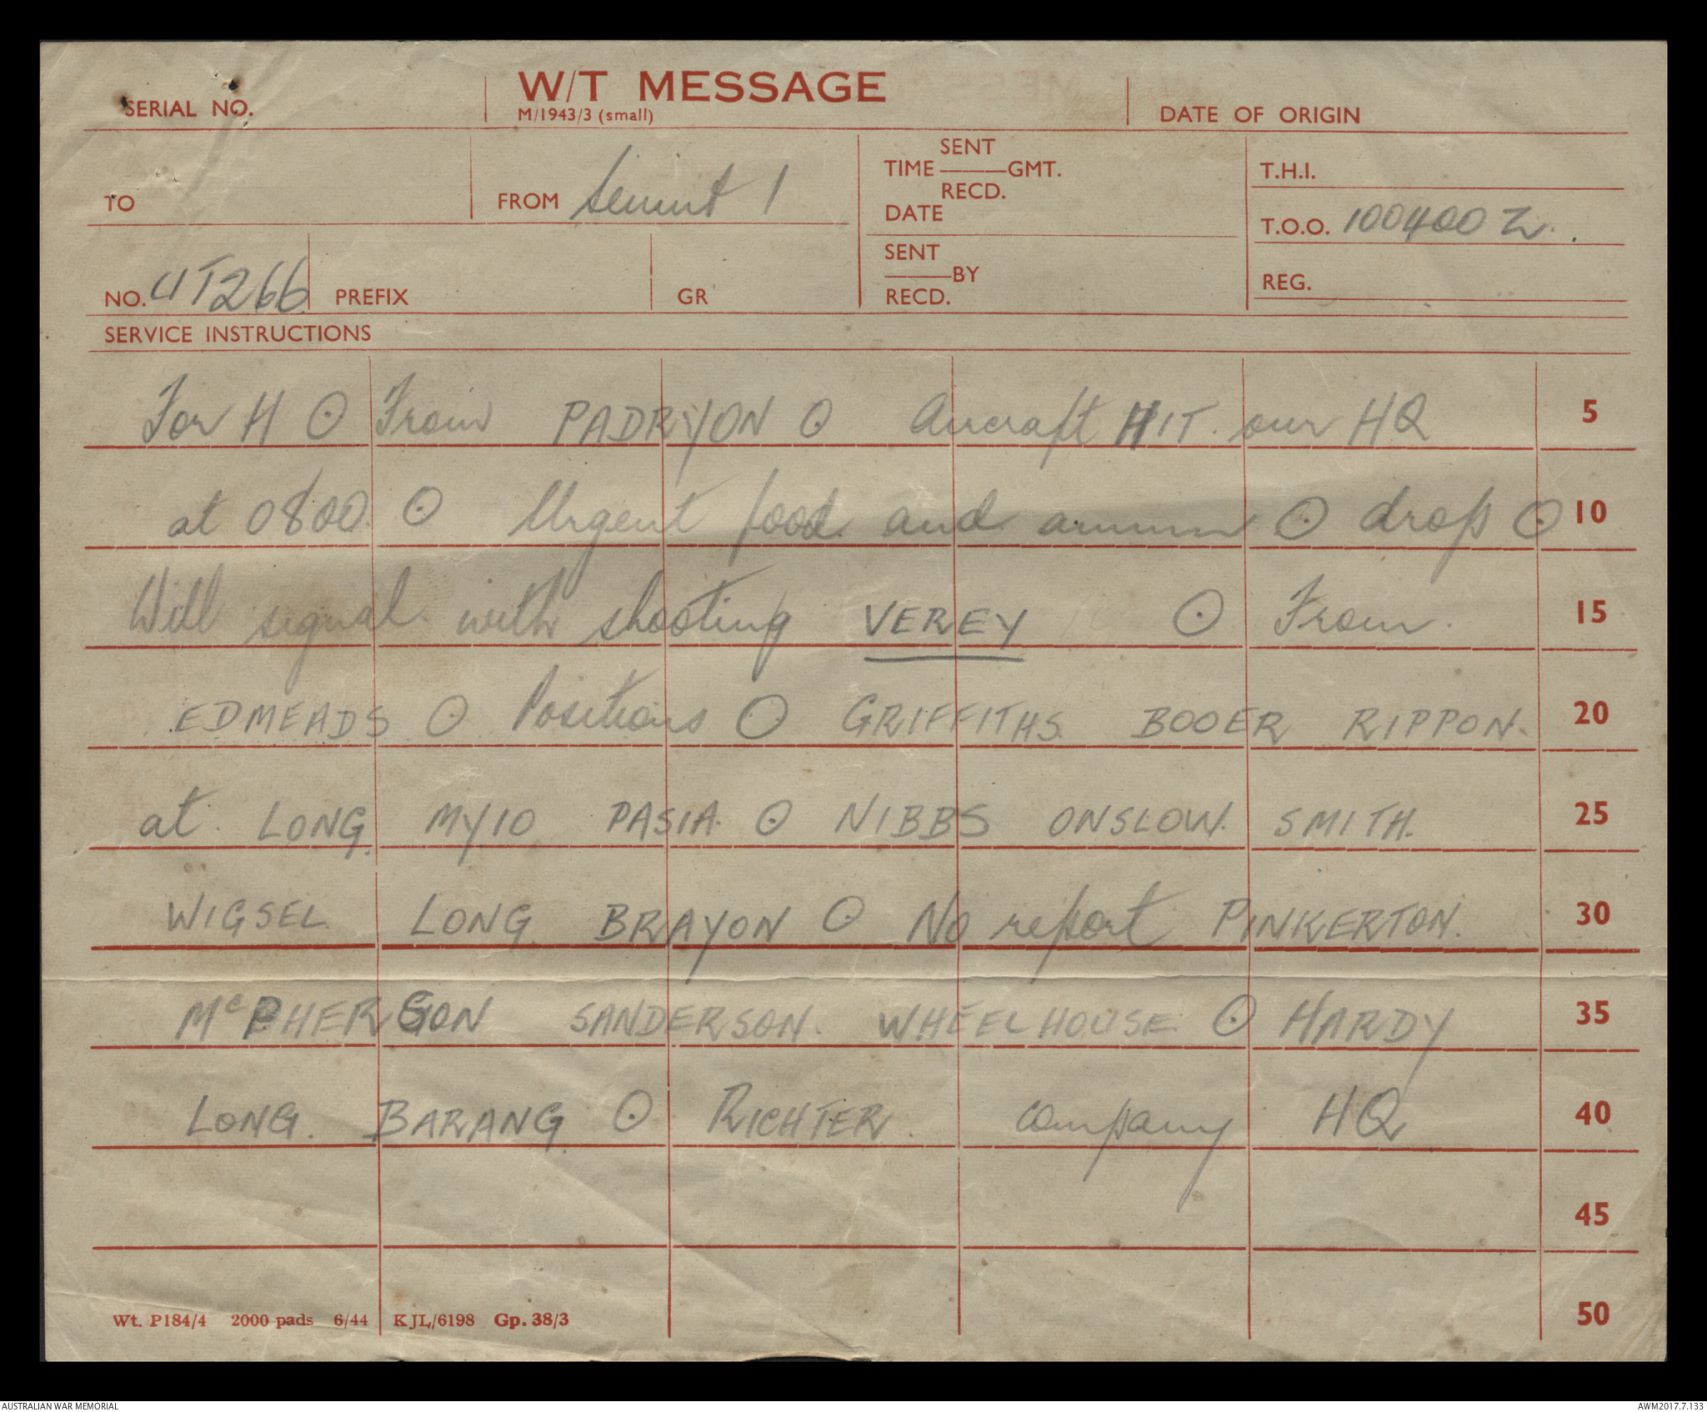 SERIAL NO.
W/T MESSAGE
M/1943/3 (small)
DATE OF ORIGIN
TO
FROM Semut 1
SENT
TIME ——— GMT.
RECD.
DATE
T.H.I.
T.O.O. 100400 Z.
NO. UT266
PREFIX
GR
SENT
——— BY
RECD.
REG.
SERVICE INSTRUCTIONS
For H ⊙ From PADRYON ⊙ Aircraft HIT. our HQ 5
at 0800 ⊙ Urgent food and ammn ⊙ drop ⊙ 10
Will signal with shooting VEREY ⊙ From. 15
EDMEADS ⊙ Positions ⊙ GRIFFITHS. BOOER RIPPON. 20
at. LONG MY10 PASIA. ⊙ NIBBS ONSLOW. SMITH. 25
WIGSEL LONG BRAYON ⊙ No report PINKERTON. 30
McPHERSON SANDERSON. WHEELHOUSE ⊙ HARDY 35
LONG. BARANG ⊙ RICHTER. company HQ 40
45
50
Wt. P184/4 2000 pads 6/44 KJL/6198 Gp. 38/3
AUSTRALIAN WAR MEMORIAL
AWM2017.7.133